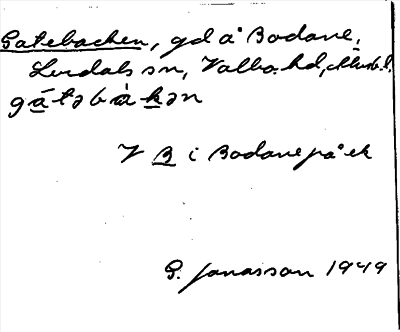 Gatebacken, gd å Bodane,
Lerdals sn, Valbo hd, Älvsb. l.
gå̱təbàḵən
V B i Bodane på ek
G. Jonasson 1949